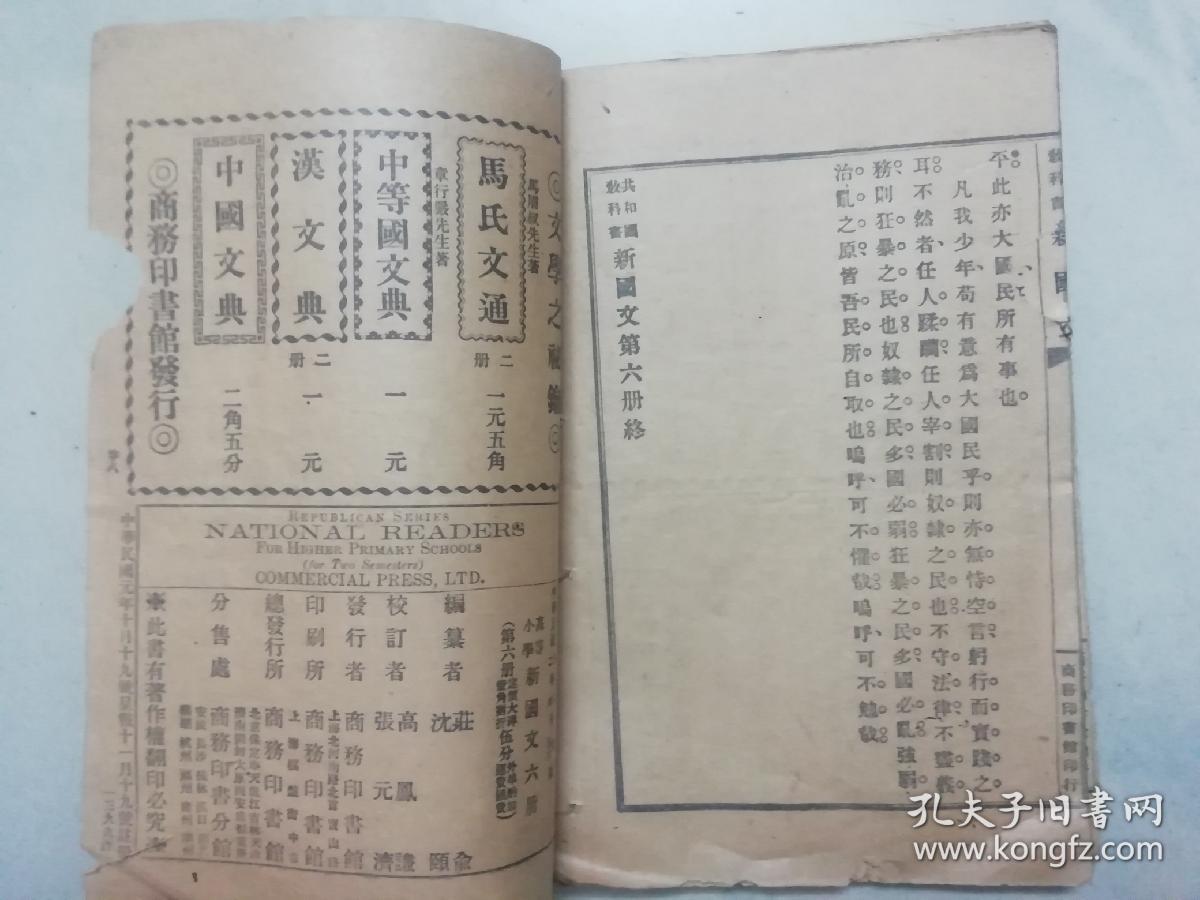 平此亦大國民所有事也
凡我少年苟有意為大國民乎則亦無恃空言躬行而實踐之
耳不然者任人蹂躪任人宰割則奴隸之民也不守法律不盡義
務則狂暴之民也奴隸之民多國必弱狂暴之民多國必亂強弱
治亂之原皆吾民所自取也嗚呼可不懼哉嗚呼可不勉哉
共和國
教科書
新國文第六册終
商務印書館印行
◎文學之
馬氏文通
二册
一元五角
章行嚴先生著
中等國文典
一元
漢文典
二册
一元
中國文典
二角五分
◎商務印書館發行◎
REPUBLICAN SERIES
NATIONAL READERS
FOR HIGHER PRIMARY SCHOOLS
(for Two Semesters)
COMMERCIAL PRESS, LTD.
高等
小學
新國文六册
編纂者
莊俞
沈頤
校訂者
高鳳謙
張元濟
發行者
商務印書館
印刷所
商務印書館
總發行所
商務印書館
分售處
商務印書分館
此書有著作權翻印必究
中華民國元年十月十九號呈報十一月十九號註册
孔夫子旧书网
www.kongfz.com